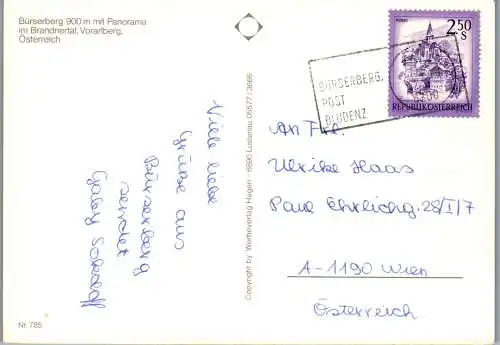 Bürserberg 900 m mit Panorama
im Brandnertal, Vorarlberg,
Österreich
Viele liebe
Grüße aus
Bürserberg
sendet
Gaby
Nr. 785
Copyright by Werbeverlag Hagen - 6890 Lustenau 05577/3666
BÜRSERBERG,
POST
BLUDENZ
2.50
S
REPUBLIK ÖSTERREICH
An Frl.
Ulrike Haas
Paul Ehrlichg. 28/I/7
A-1190 Wien
Österreich